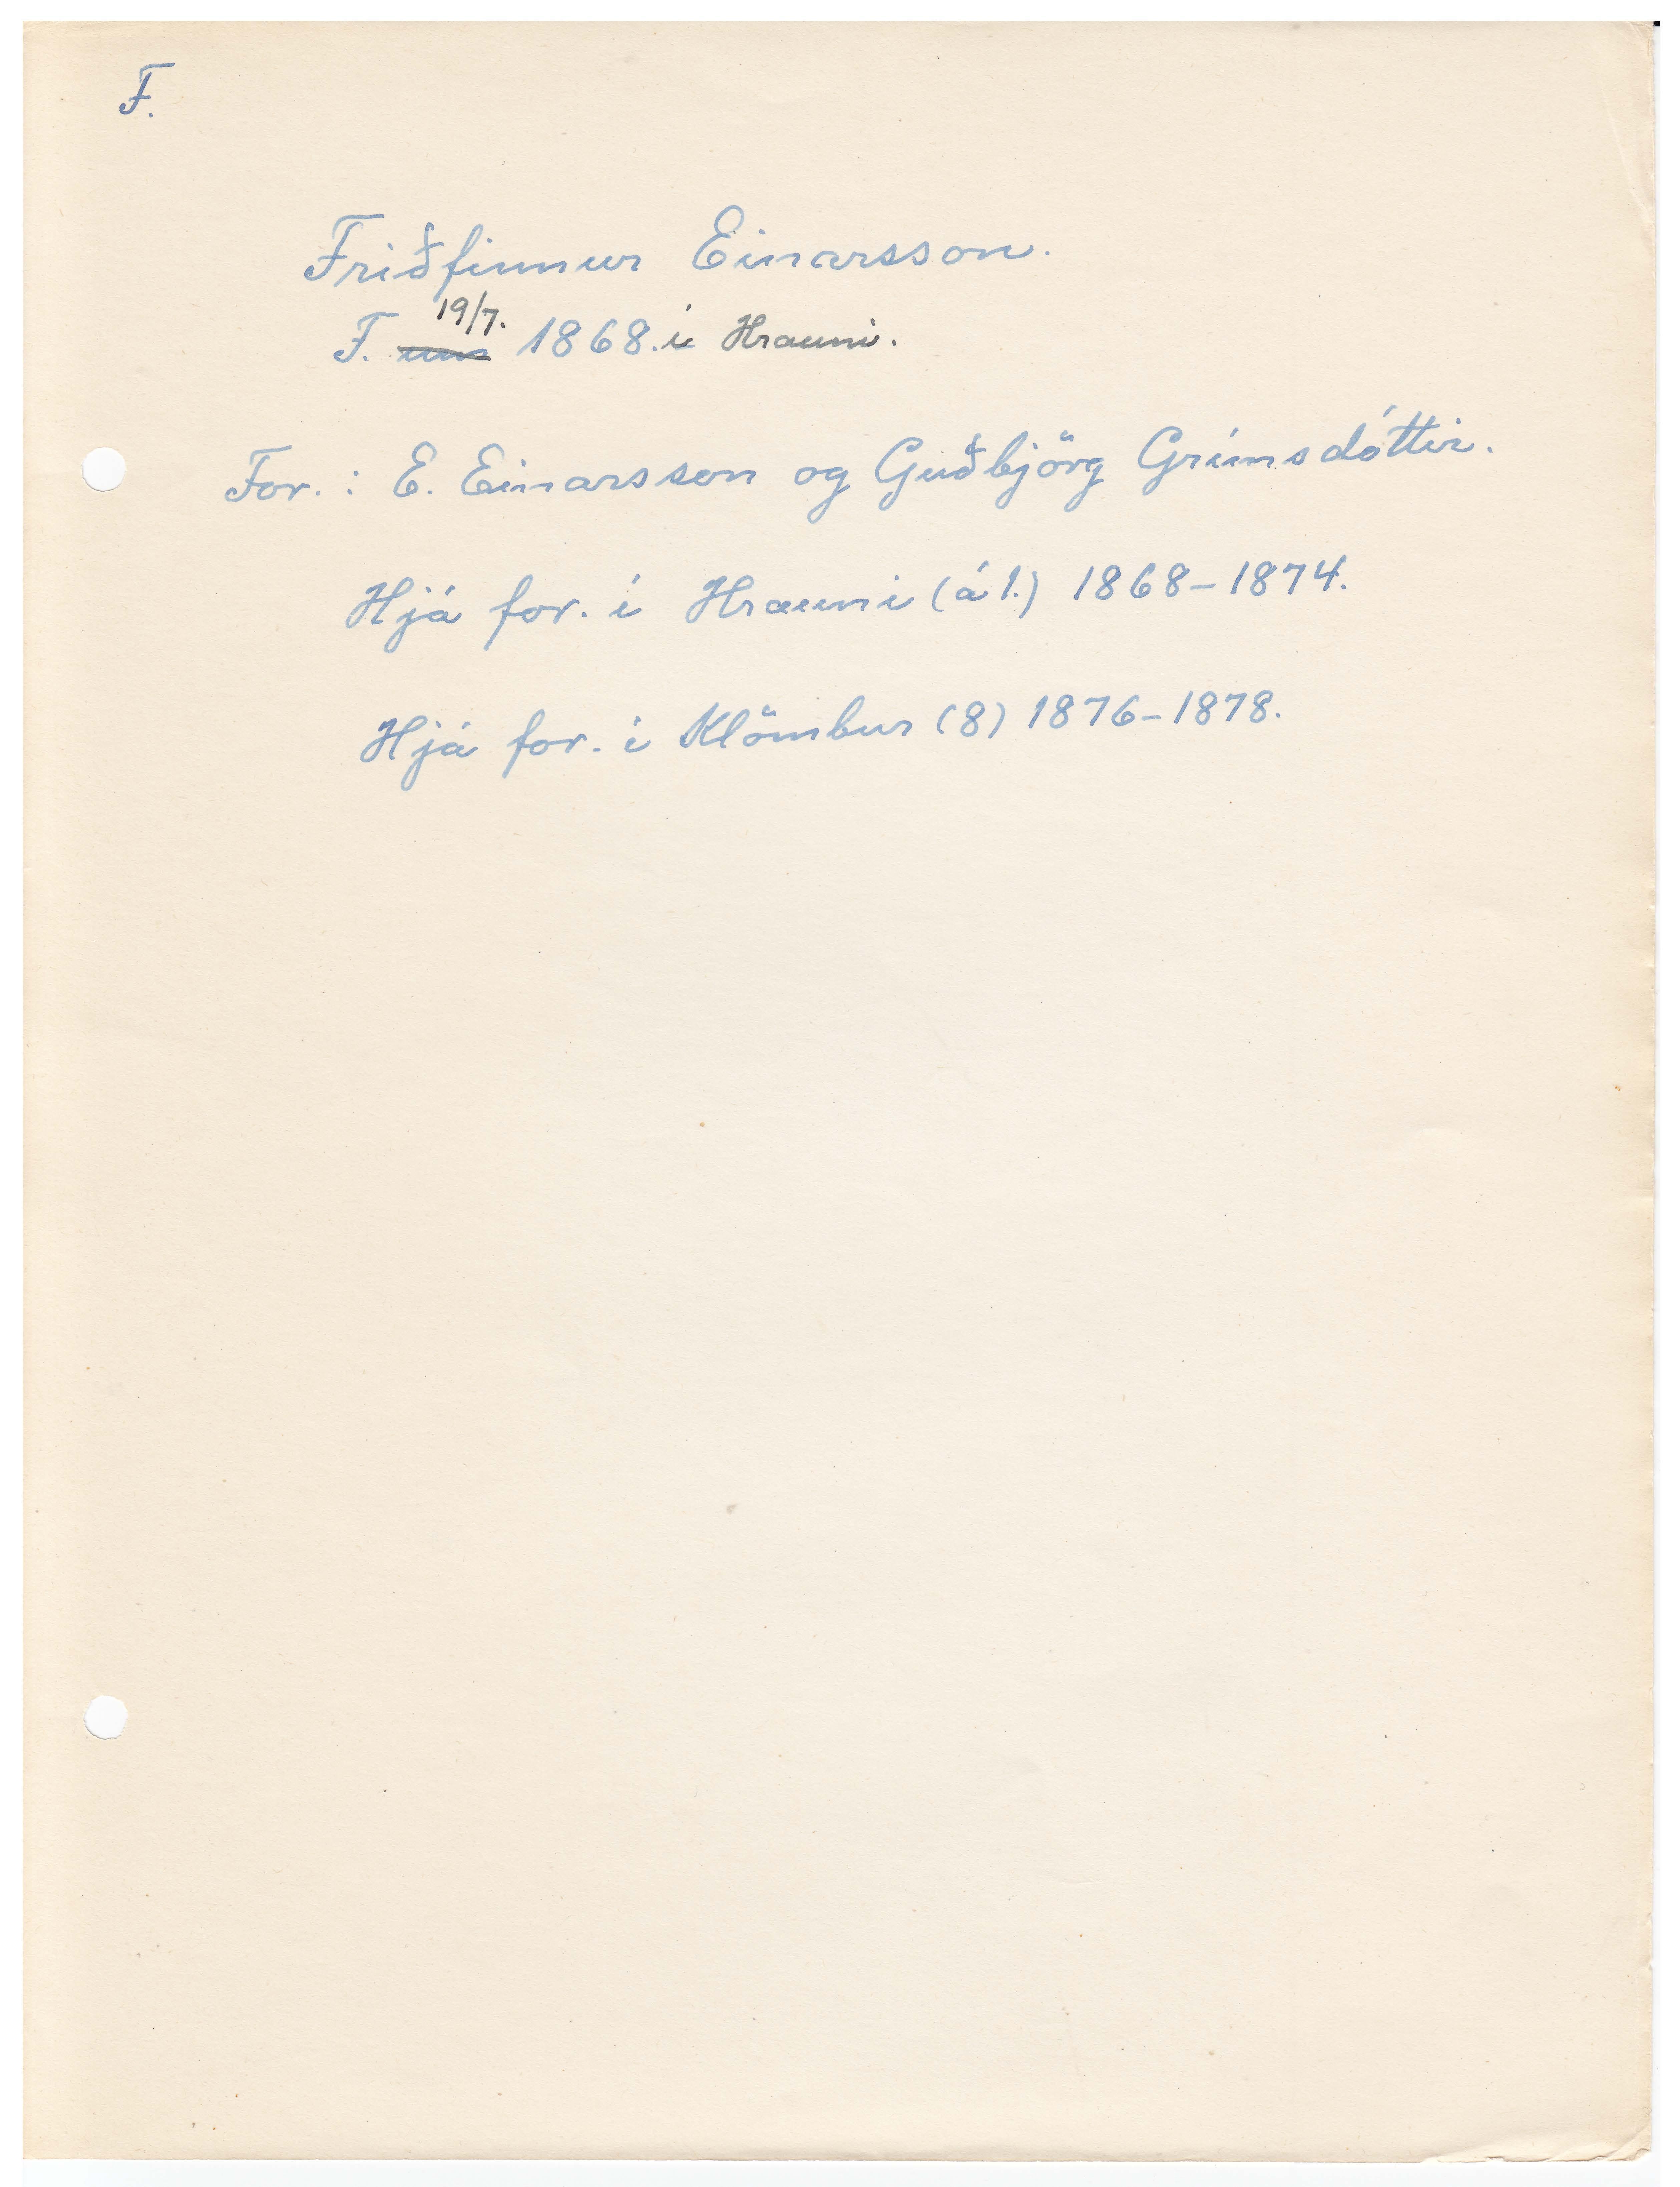 F.
Friðfinnur Einarsson.
19/7.
F. um 1868. í Hrauni.
For. : E. Einarsson og Guðbjörg Grímsdóttir.
Hjá for. í Hrauni (á 1.) 1868-1874.
Hjá for. í Klömbur (8) 1876-1878.